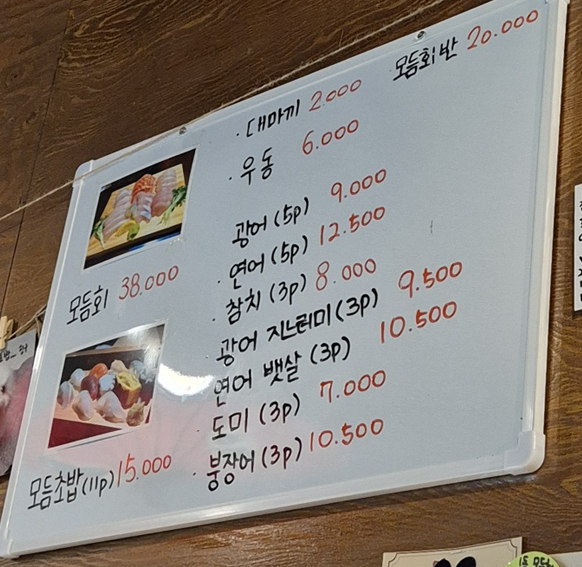 모듬회반 20.000
· 대마끼 2.000
· 우동 6.000
광어 (5p) 9.000
· 연어 (5p) 12.500
· 참치 (3p) 8.000
· 광어 지느러미 (3p) 9.500
연어 뱃살 (3p) 10.500
· 도미 (3p) 7.000
· 붕장어 (3p) 10.500
모듬회 38.000
모듬초밥 (11p) 15.000